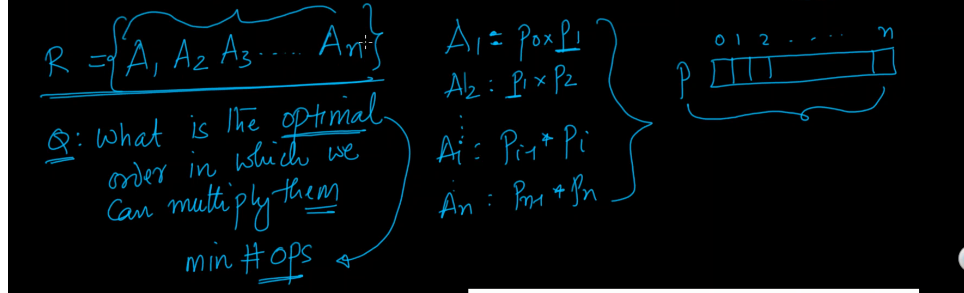 R = { A₁ A₂ A₃ ..... Aₙ }
Q: What is the optimal
order in which we
can multiply them
min # ops
A₁ = p₀ × p₁
A₂ : p₁ × p₂
⋮
Aᵢ : pᵢ₋₁ * pᵢ
Aₙ : pₙ₋₁ * pₙ
0 1 2 . . . . . n
P